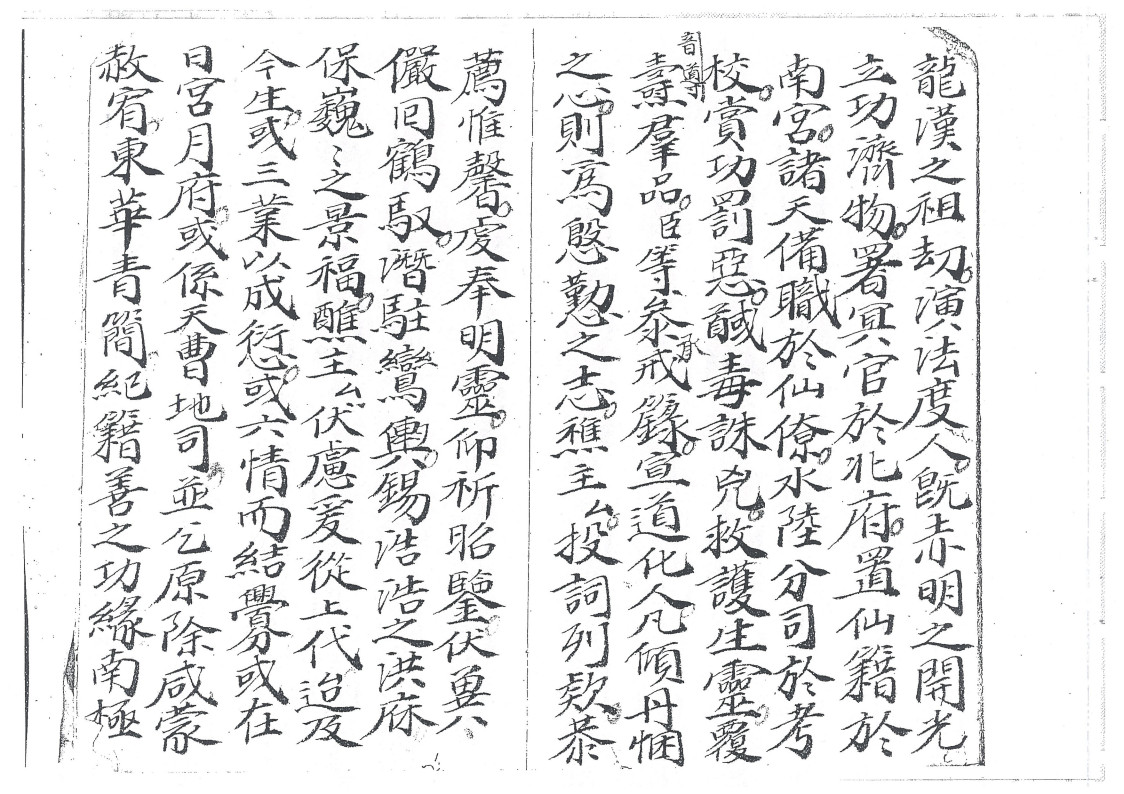 龍漢之祖劫。演法度人。既赤明之開光
立功濟物。署冥官於北府。置仙籍於
南宮。諸天備職於仙僚。水陸分司於考
校。賞功罰惡。馘毒誅兇。救護生靈。覆
音導
燾羣品。臣等叅戒籙。宣道化人。凡傾丹悃
承
之心。則爲慇懃之志。醮主厶。投詞列欵。恭
薦惟馨。虔奉明靈。仰祈昭鑒。伏兾
儼回鶴馭。潛駐鸞輿。錫浩浩之洪庥
保巍〻之景福。醮主厶伏慮爰從上代迨及
今生。或三業以成愆。或六情而結釁。或在
日宮月府。或係天曹地司。並乞原除咸蒙
赦宥。東華青簡。紀籍善之功緣南極